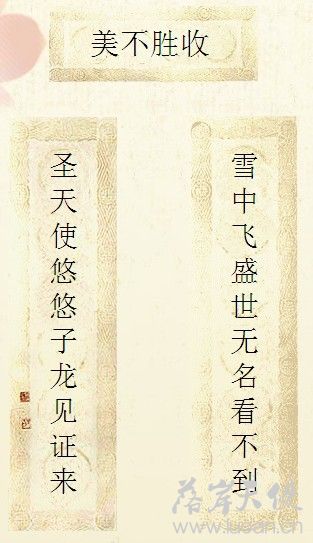 美不胜收
雪中飞盛世无名看不到
圣天使悠悠子龙见证来
www.luoan.cn